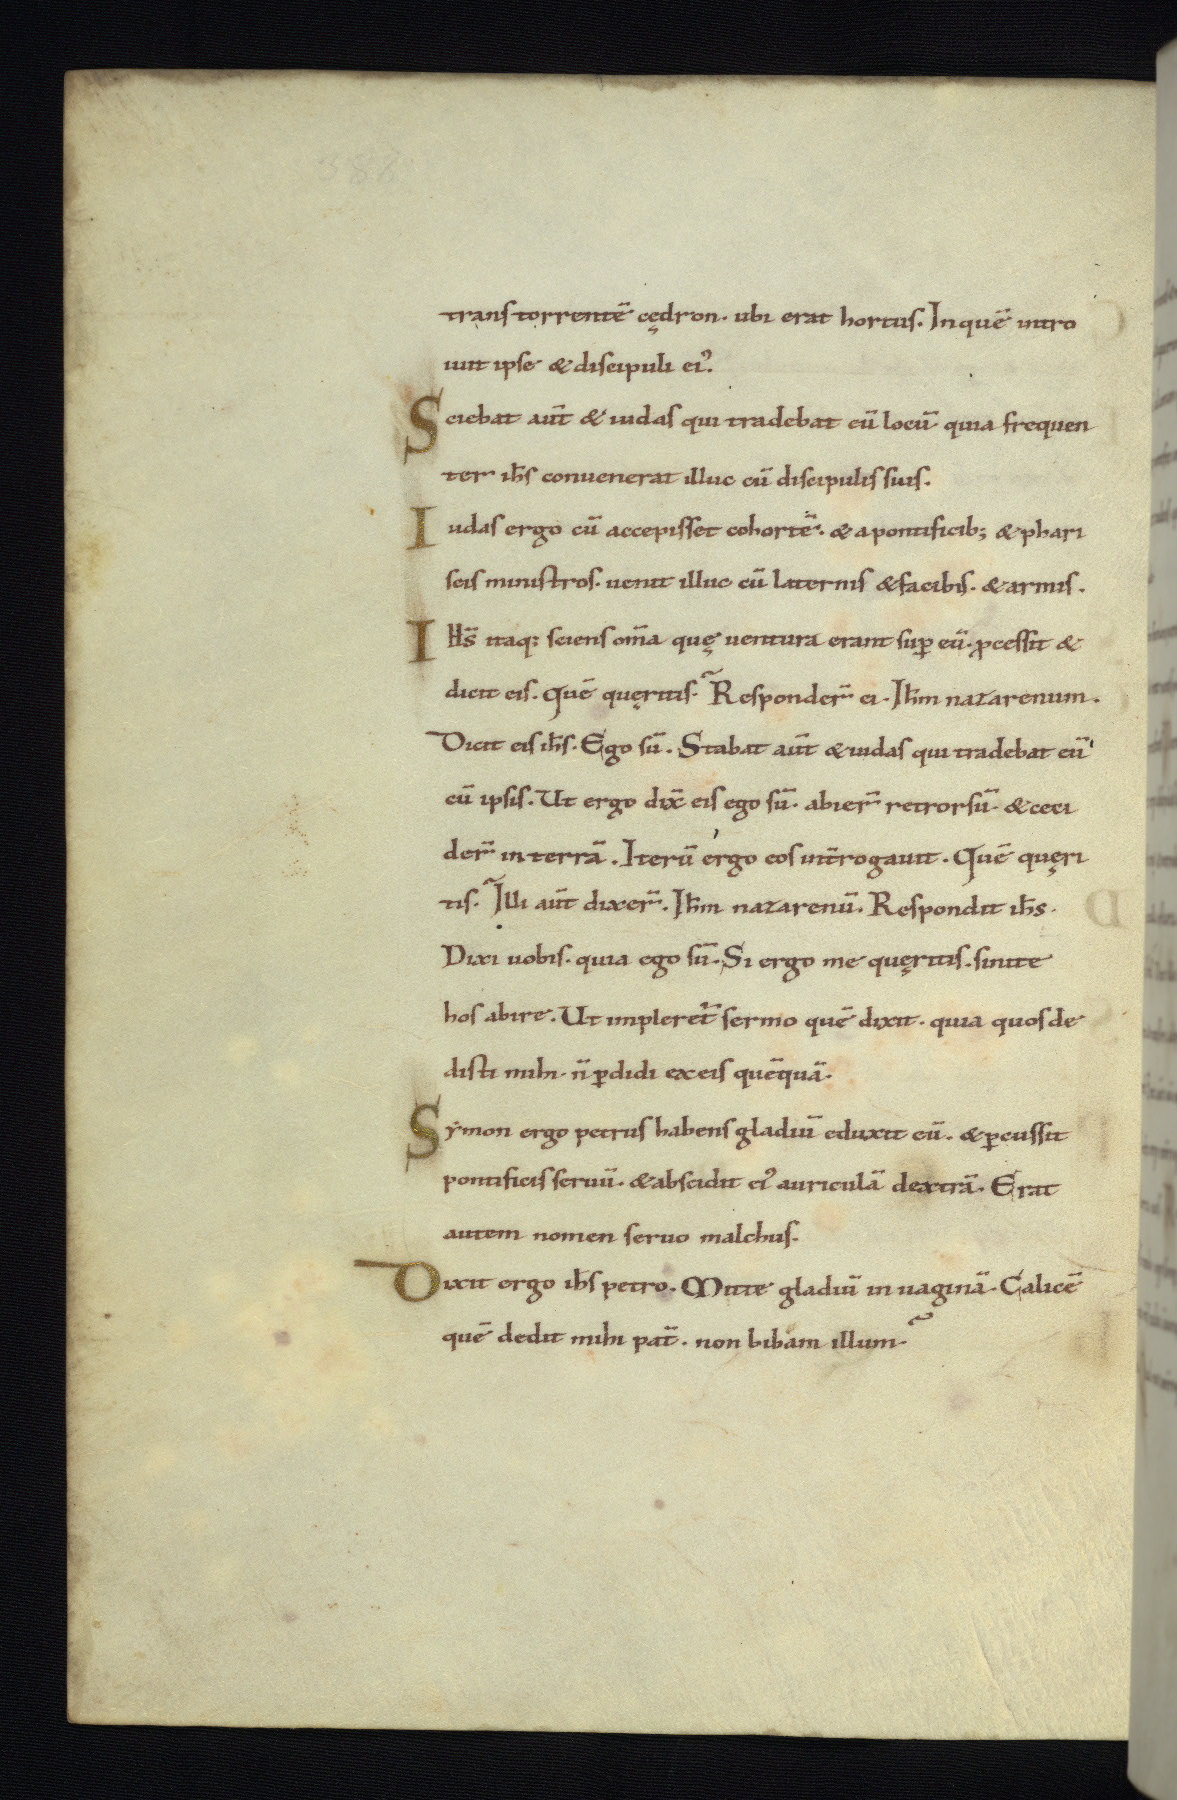 trans torrentē cędron. ubi erat hortus. In quē intro
iuit ipse & discipuli ei⁹.
Sciebat aut̄ & iudas qui tradebat eū locū quia frequen
ter ih̄s convenerat illuc cū discipulis suis.
Iudas ergo cū accepisset cohortē. & a pontificib; & phari
seis ministros. uenit illuc cū laternis & facibis. & armis.
Ihs̄ itaq; sciens om̄a quę ventura erant sup̄ eū. ꝓcessit &
dicit eis. Quē quęritis. Responder̄ ei. Ih̄m nazarenum.
Dicit eis ih̄s. Ego sū. Stabat aut̄ & iudas qui tradebat eū
cū ipsis. Ut ergo dix̄ eis ego sū. abier̄ retrorsū. & ceci
der̄ in terrā. Iterū ergo eos int̄rogauit. Quē quęri
tis. Illi aut̄ dixer̄. Ih̄m nazarenū. Respondit ih̄s.
Dixi uobis. quia ego sū. Si ergo me quęritis. sinite
hos abire. Ut impleret̄ sermo quē dixit. quia quos de
disti mihi. n̄ ꝑdidi ex eis quēquā.
Sẏmon ergo petrus habens gladiū eduxit eū. & ꝑcussit
pontificis seruū. & abscidit ei⁹ auriculā dextrā. Erat
autem nomen seruo malchus.
Dixit ergo ih̄s petro. Mitte gladiū in uaginā. Calicē
quē dedit mihi pat̄. non bibam illum.